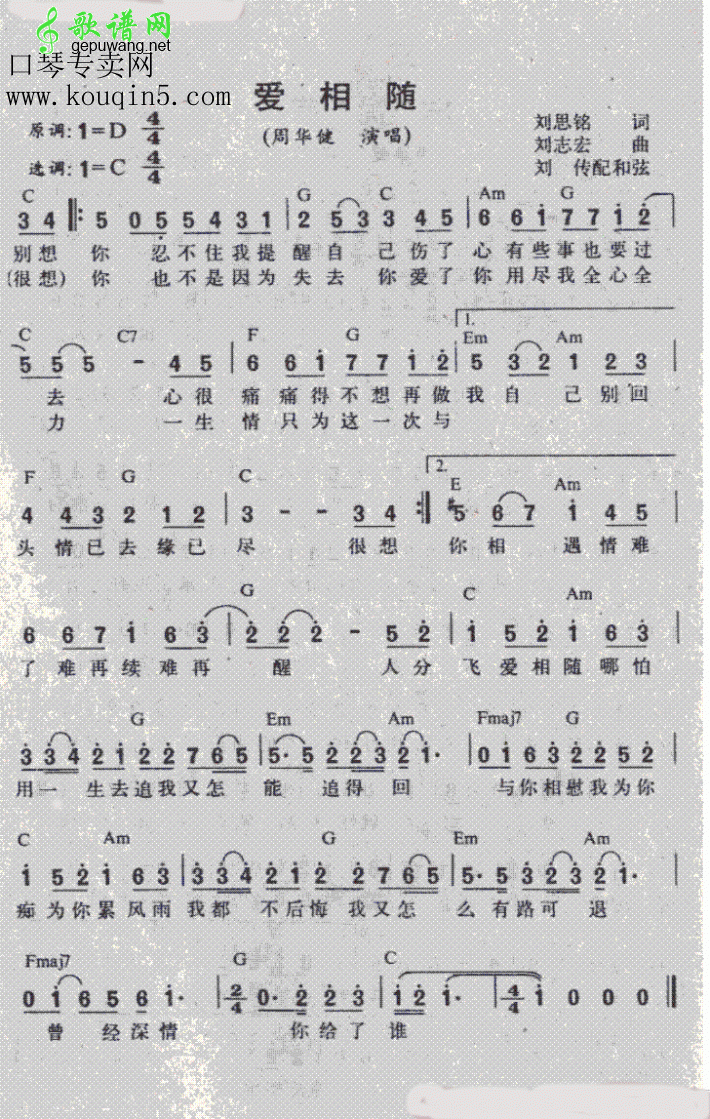 歌谱网
gepuwang.net
口琴专卖网
www.kouqin5.com
爱相随
原调:1=D 4/4
(周华健 演唱)
刘思铭 词
刘志宏 曲
选调:1=C 4/4
刘 传配和弦
C G C Am G
3 4 ‖: 5 0 5 5 4 3 1 | 2 5 3 3 4 5 | 6 6 1 7 7 1 2 |
别想 你 忍不住我提醒自 己伤了心有些事也要过
(很想)你 也不是因为失去 你爱了你用尽我全心全
C C7 F G 1. Em Am
5 5 5 - 4 5 | 6 6 1 7 7 1 2 | 5 3 2 1 2 3 |
去 心很痛痛得不想再做我自 己别回
力 一生情只为这一次与
F G C 2. E Am
4 4 3 2 1 2 | 3 - - 3 4 :‖ #5 6 7 1 4 5 |
头情已去缘已尽 很想 你相 遇情难
G C Am
6 6 7 1 6 3 | 2 2 2 - 5 2 | 1 5 2 1 6 3 |
了难再续难再 醒 人分飞爱相随哪怕
G Em Am Fmaj7 G
3 3 4 2 1 2 2 7 6 5 | 5· 5 2 2 3 2 1· | 0 1 6 3 2 2 5 2 |
用一 生去追我又怎 能 追得回 与你相慰我为你
C Am G Em Am
1 5 2 1 6 3 | 3 3 4 2 1 2 2 7 6 5 | 5· 5 3 2 3 2 1· |
痴为你累风雨我都 不后悔我又怎 么有路可 退
Fmaj7 G C
0 1 6 5 6 1· | 2/4 0· 2 2 3 | 1 2 1· | 4/4 1 0 0 0 ‖
曾 经深情 你给了谁